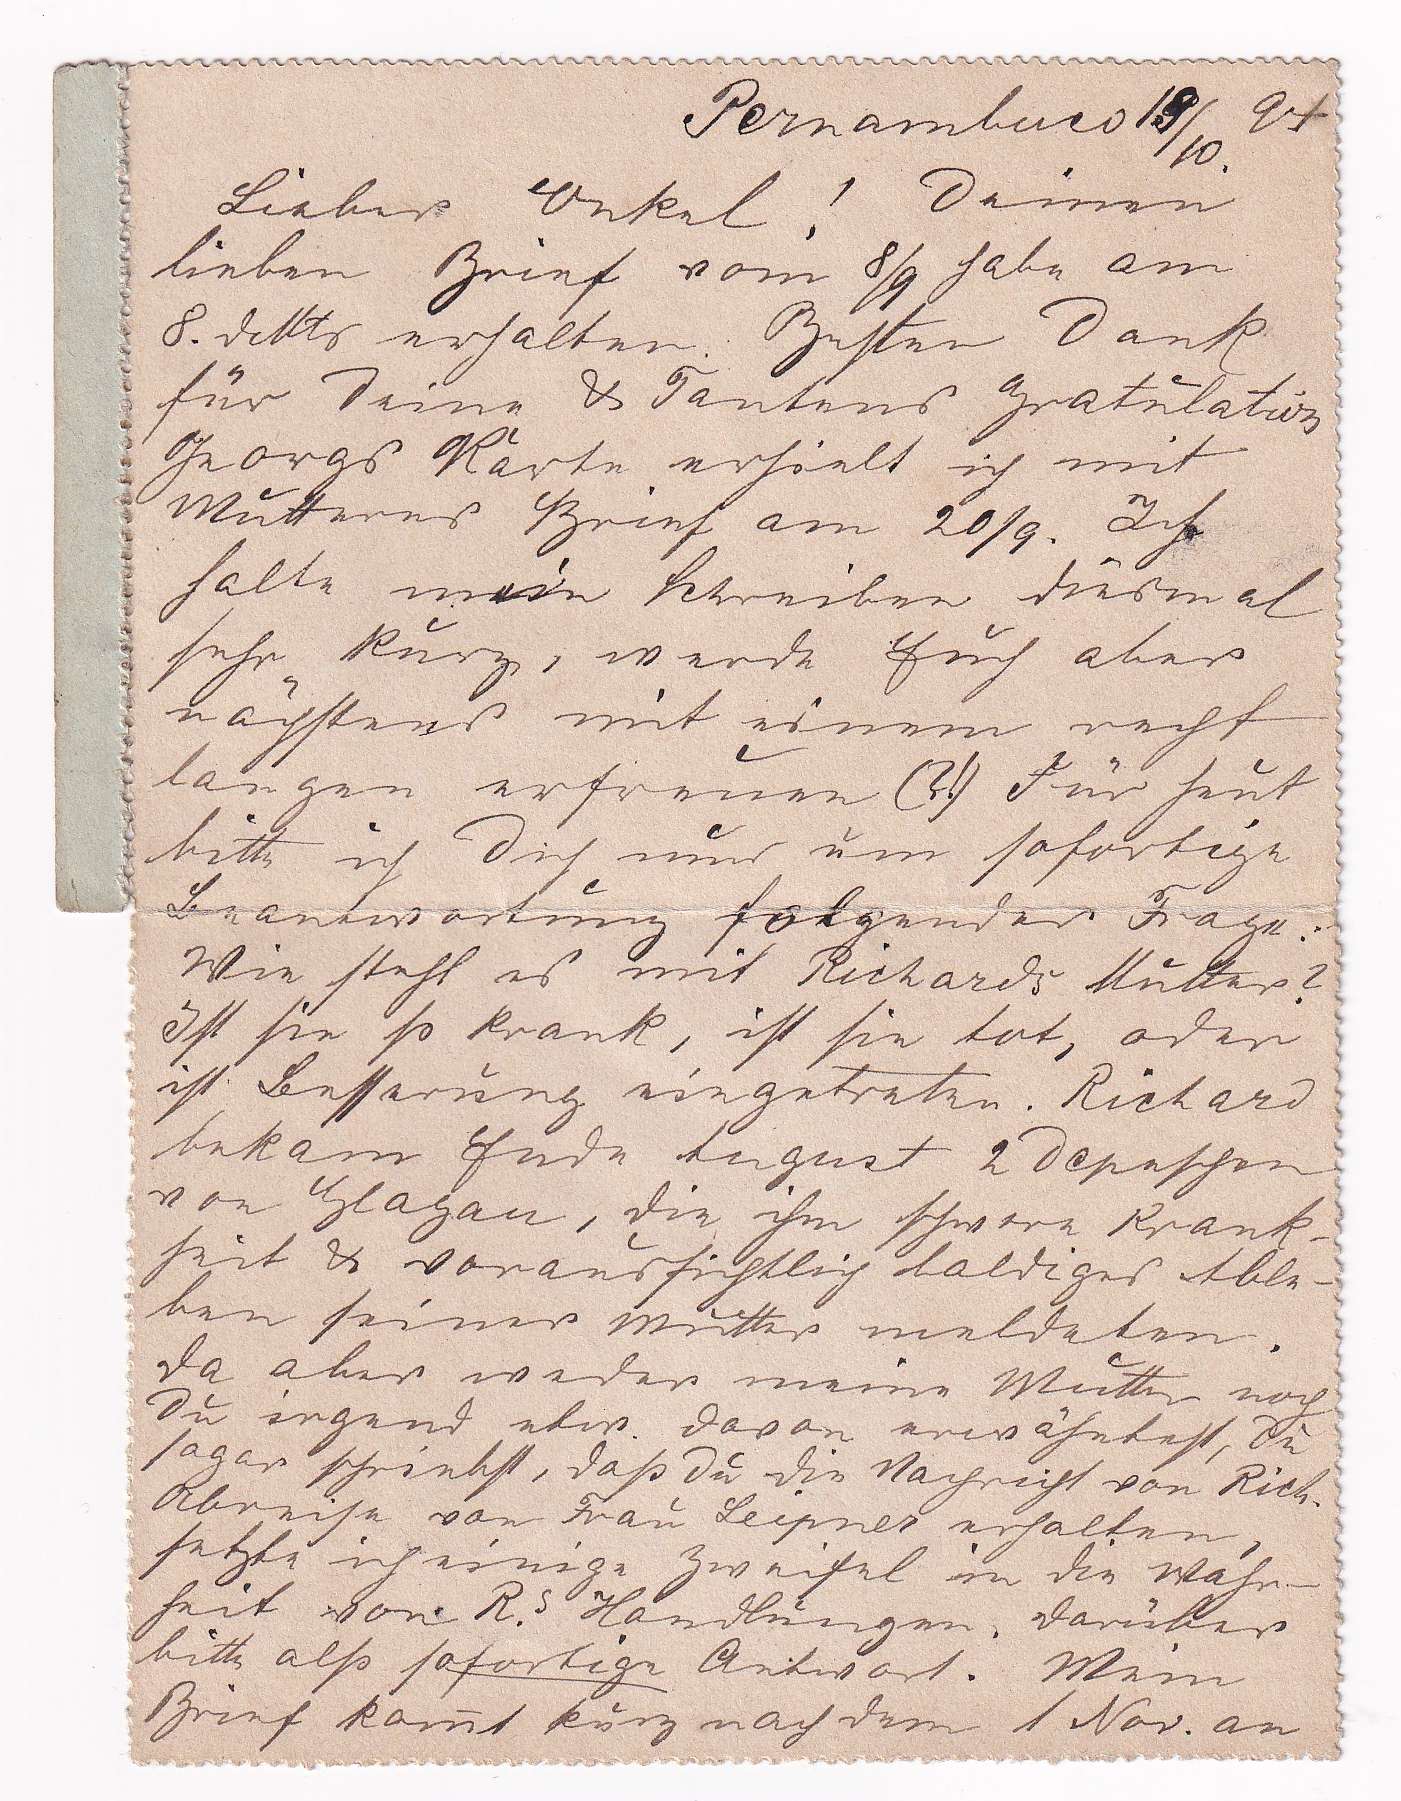 Pernambuco 19/10. 94
Lieber Onkel! Deinen
lieben Brief vom 8/9 habe am
8. erhalten. Besten Dank
für Deine & Tantens Gratulation
Georgs Karte erhielt ich mit
Mutterns Brief am 20/9. Ich
halte mein Schreiben diesmal
sehr kurz, werde Euch aber
nächstens mit einem recht
langen erfreuen (?!) Für heut
bitte ich Dich nur um sofortige
Beantwortung folgender Frage:
Wie steht es mit Richards Mutter?
Ist sie so krank, ist sie tot, oder
ist Besserung eingetreten. Richard
bekam Ende August 2 Depeschen
von Glogau, die ihm schwere Krank-
heit & voraussichtlich baldiges Able-
ben seiner Mutter meldeten.
Da aber weder meine Mutter noch
Du irgend etw. davon erwähntest, Du
sogar schriebst, daß Du die Nachricht von Rich.
Abreise von Frau Leipner erhalten,
setzte ich einige Zweifel in die Wahr-
heit von R.s Handlungen. Darüber
bitte also sofortige Antwort. Mein
Brief kom̅t kurz nach dem 1 Nov. an